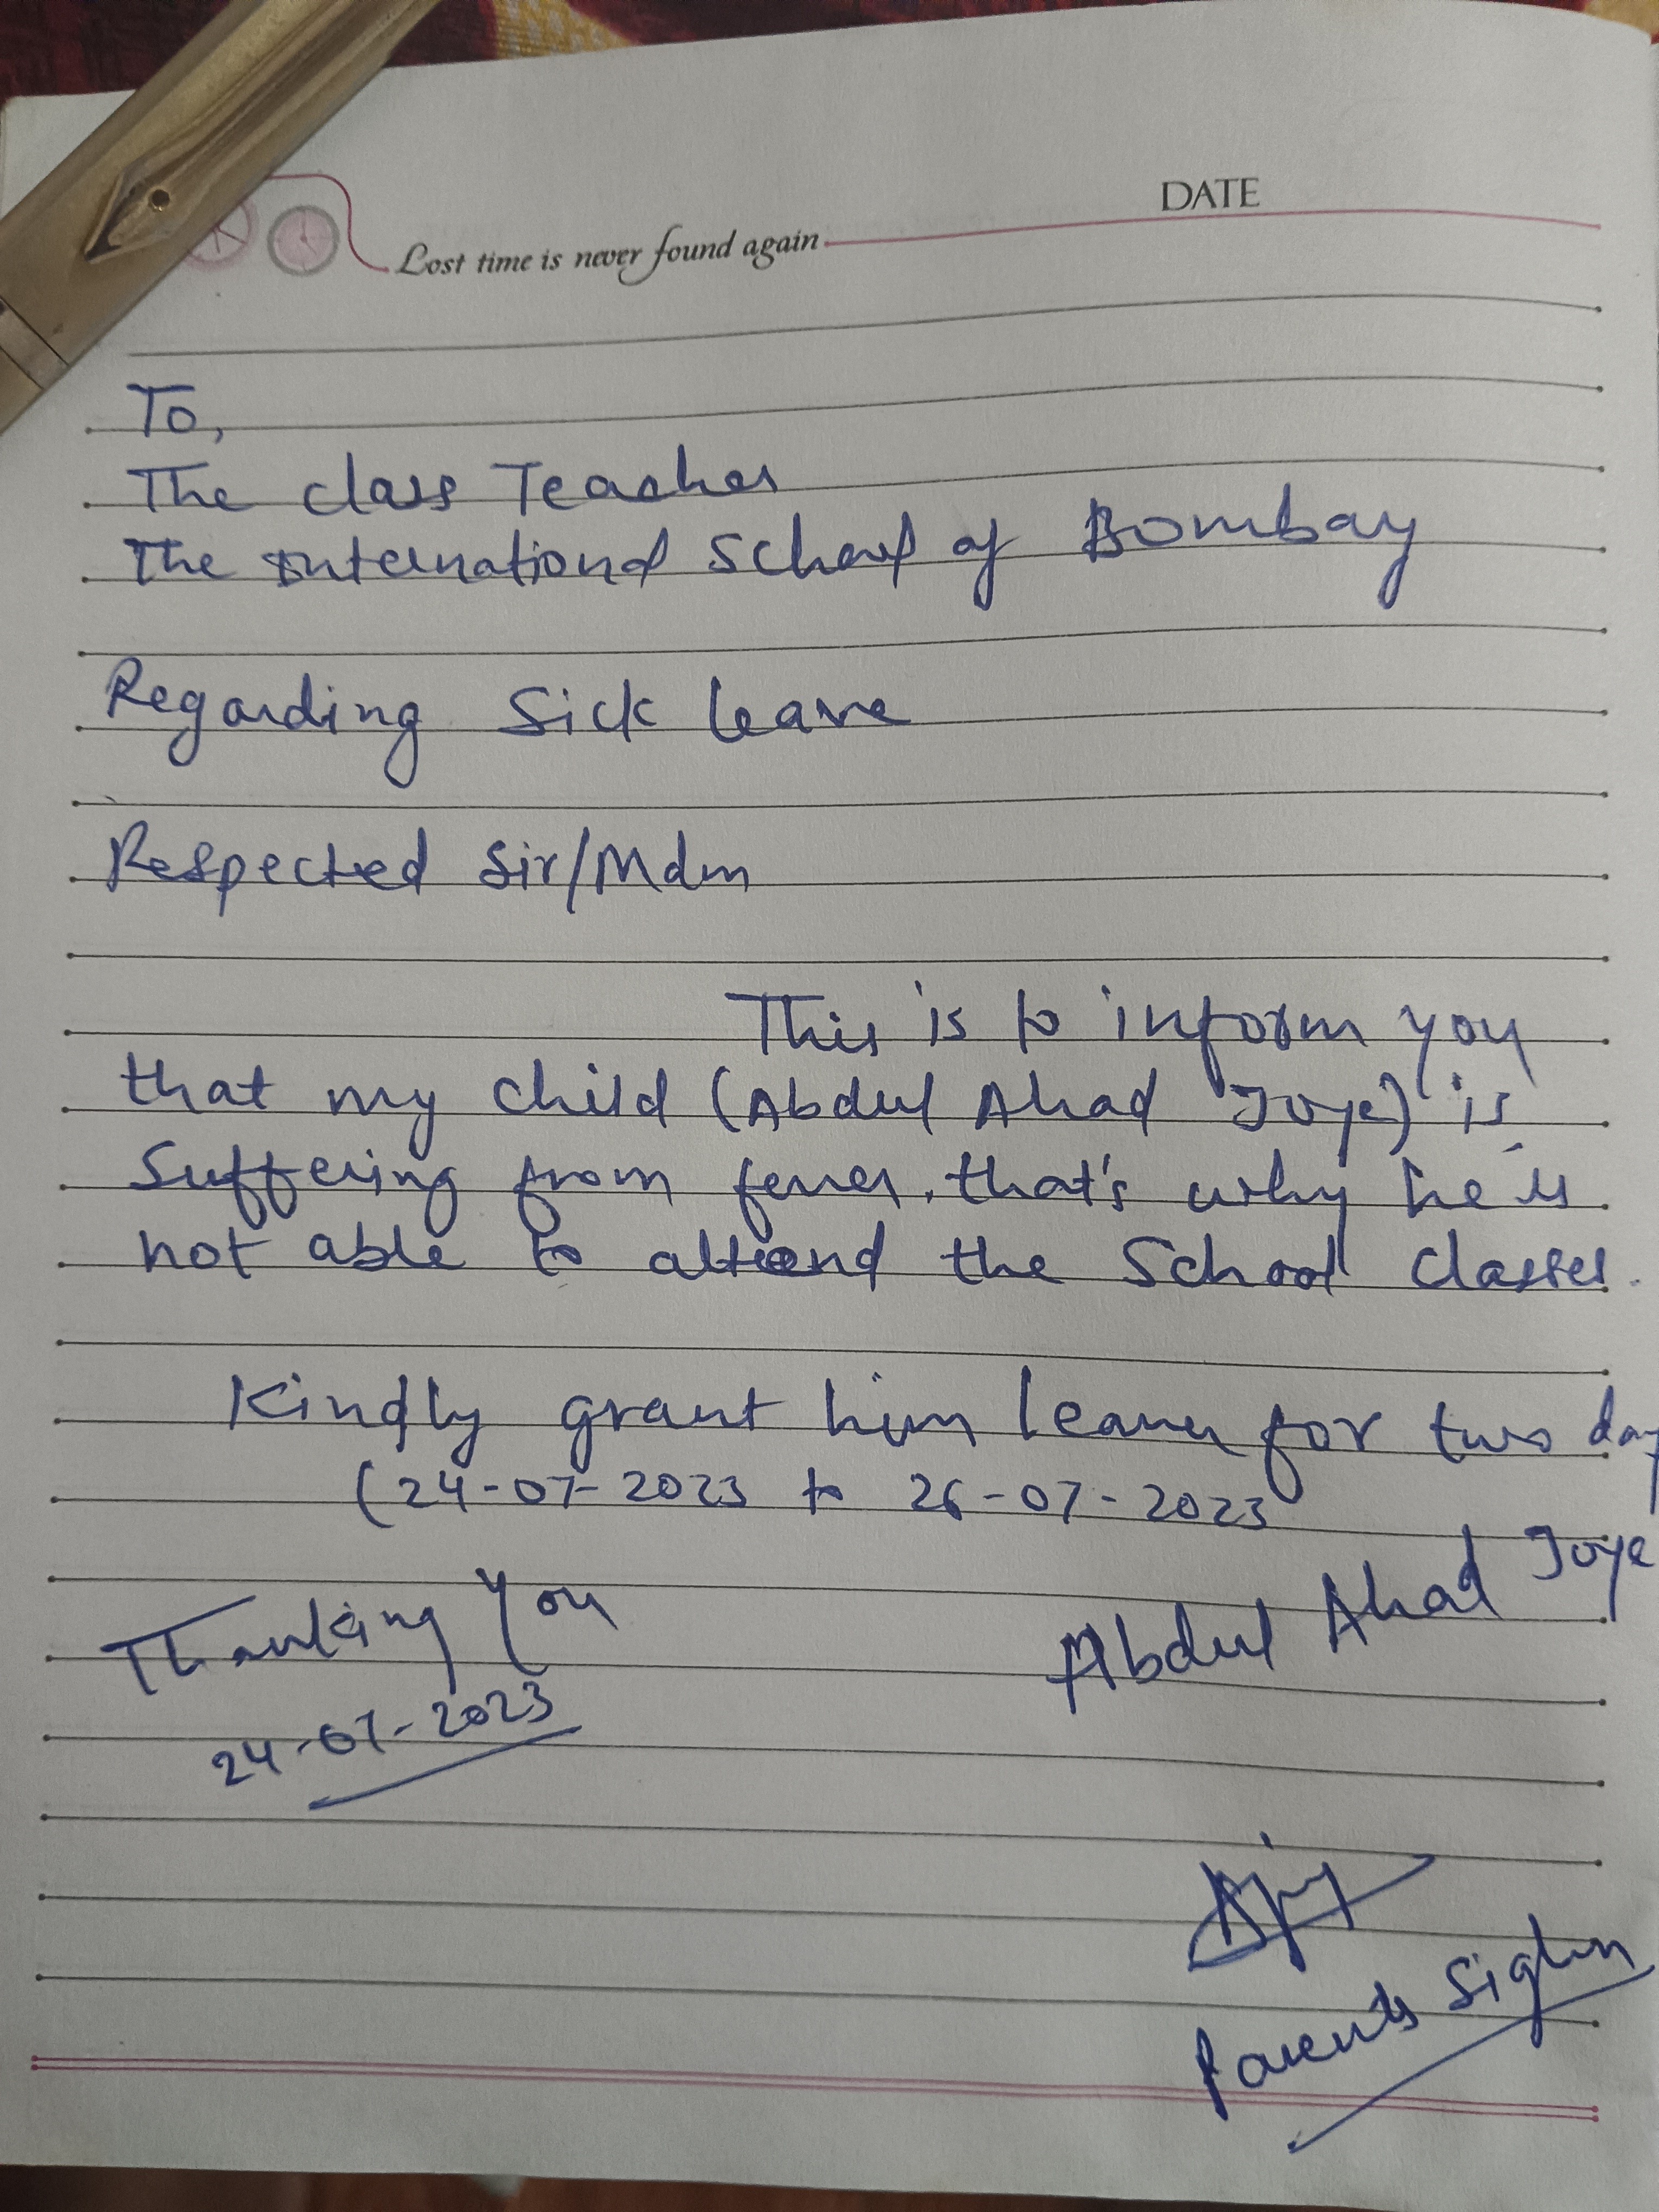 DATE
Lost time is never found again
To,
The class Teacher
The International School of Bombay
Regarding Sick leave
Respected Sir/Mdm
This is to inform you
that my child (Abdul Ahad Joye) is
Suffering from fever. that's why he is
not able to attend the School classes.
Kindly grant him leave for two day
(24-07-2023 to 26-07-2023
Abdul Ahad Joye
Thanking you
24-07-2023
Parents